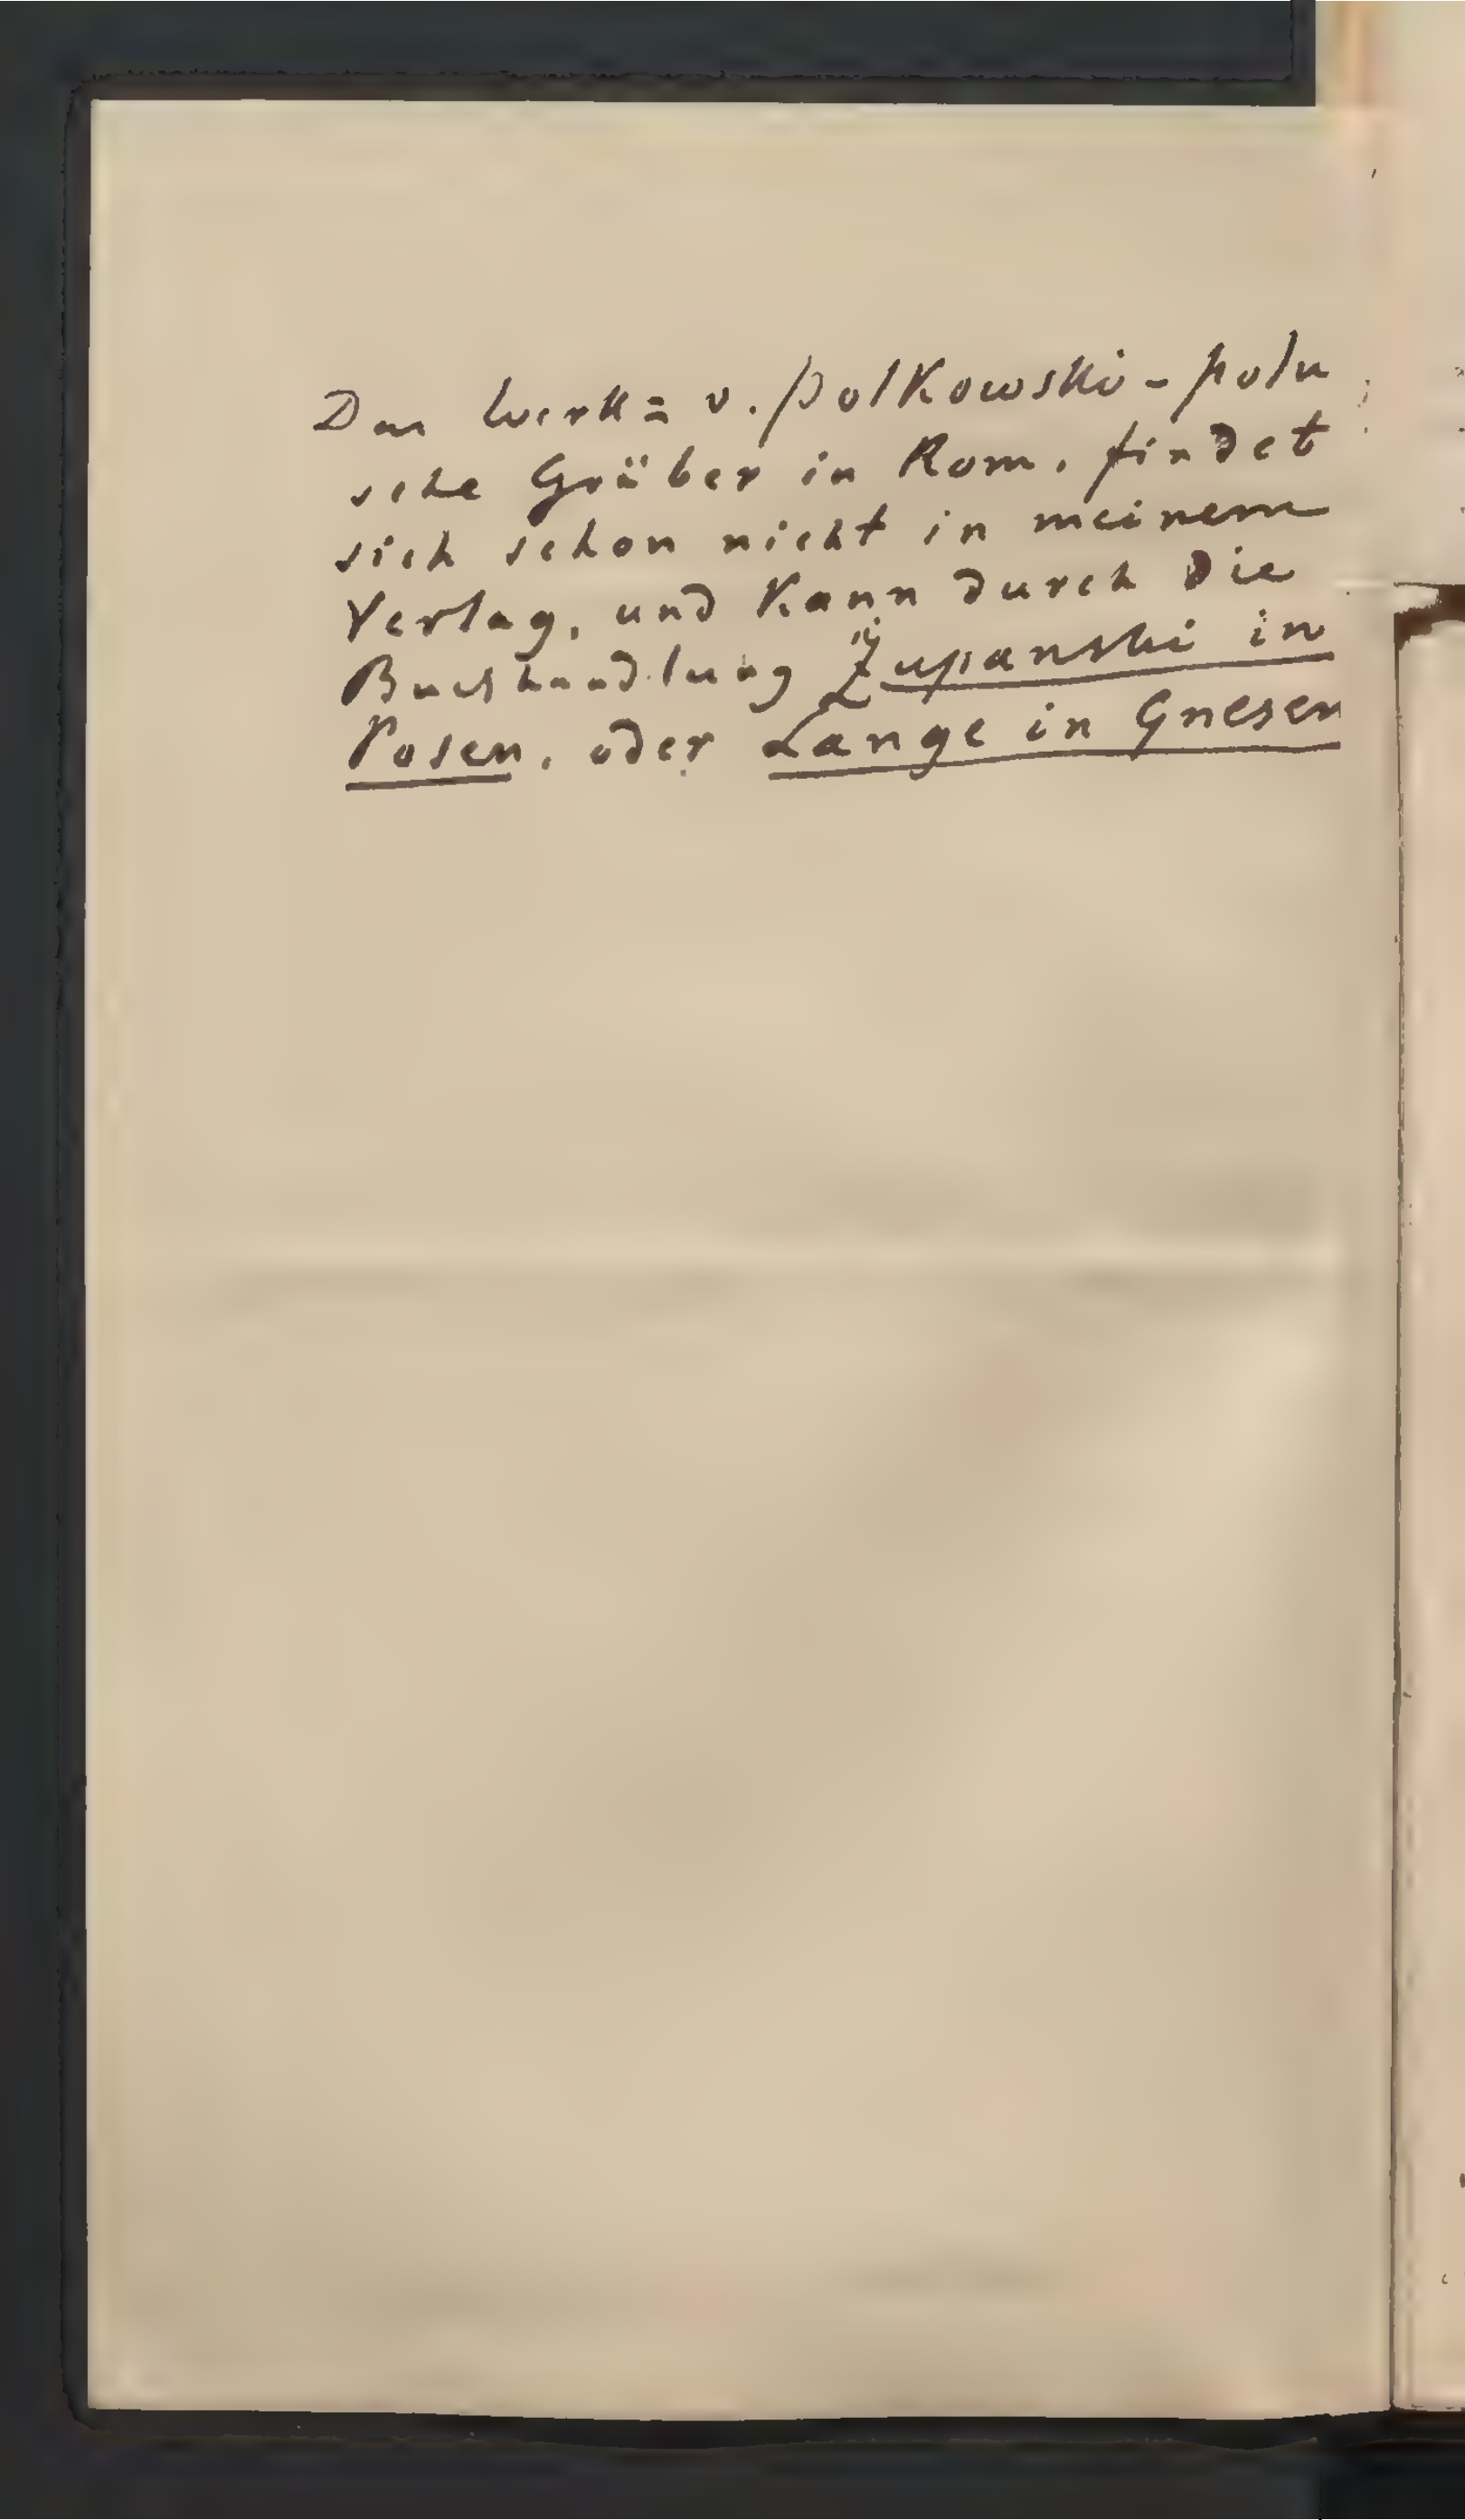 Das Werk = v. Polkowski - poln
sche Gräber in Rom, findet
sich schon nicht in meinem
Verlag, und kann durch die
Buchhandlung Żupanski in
Posen, oder Lange in Gnesen